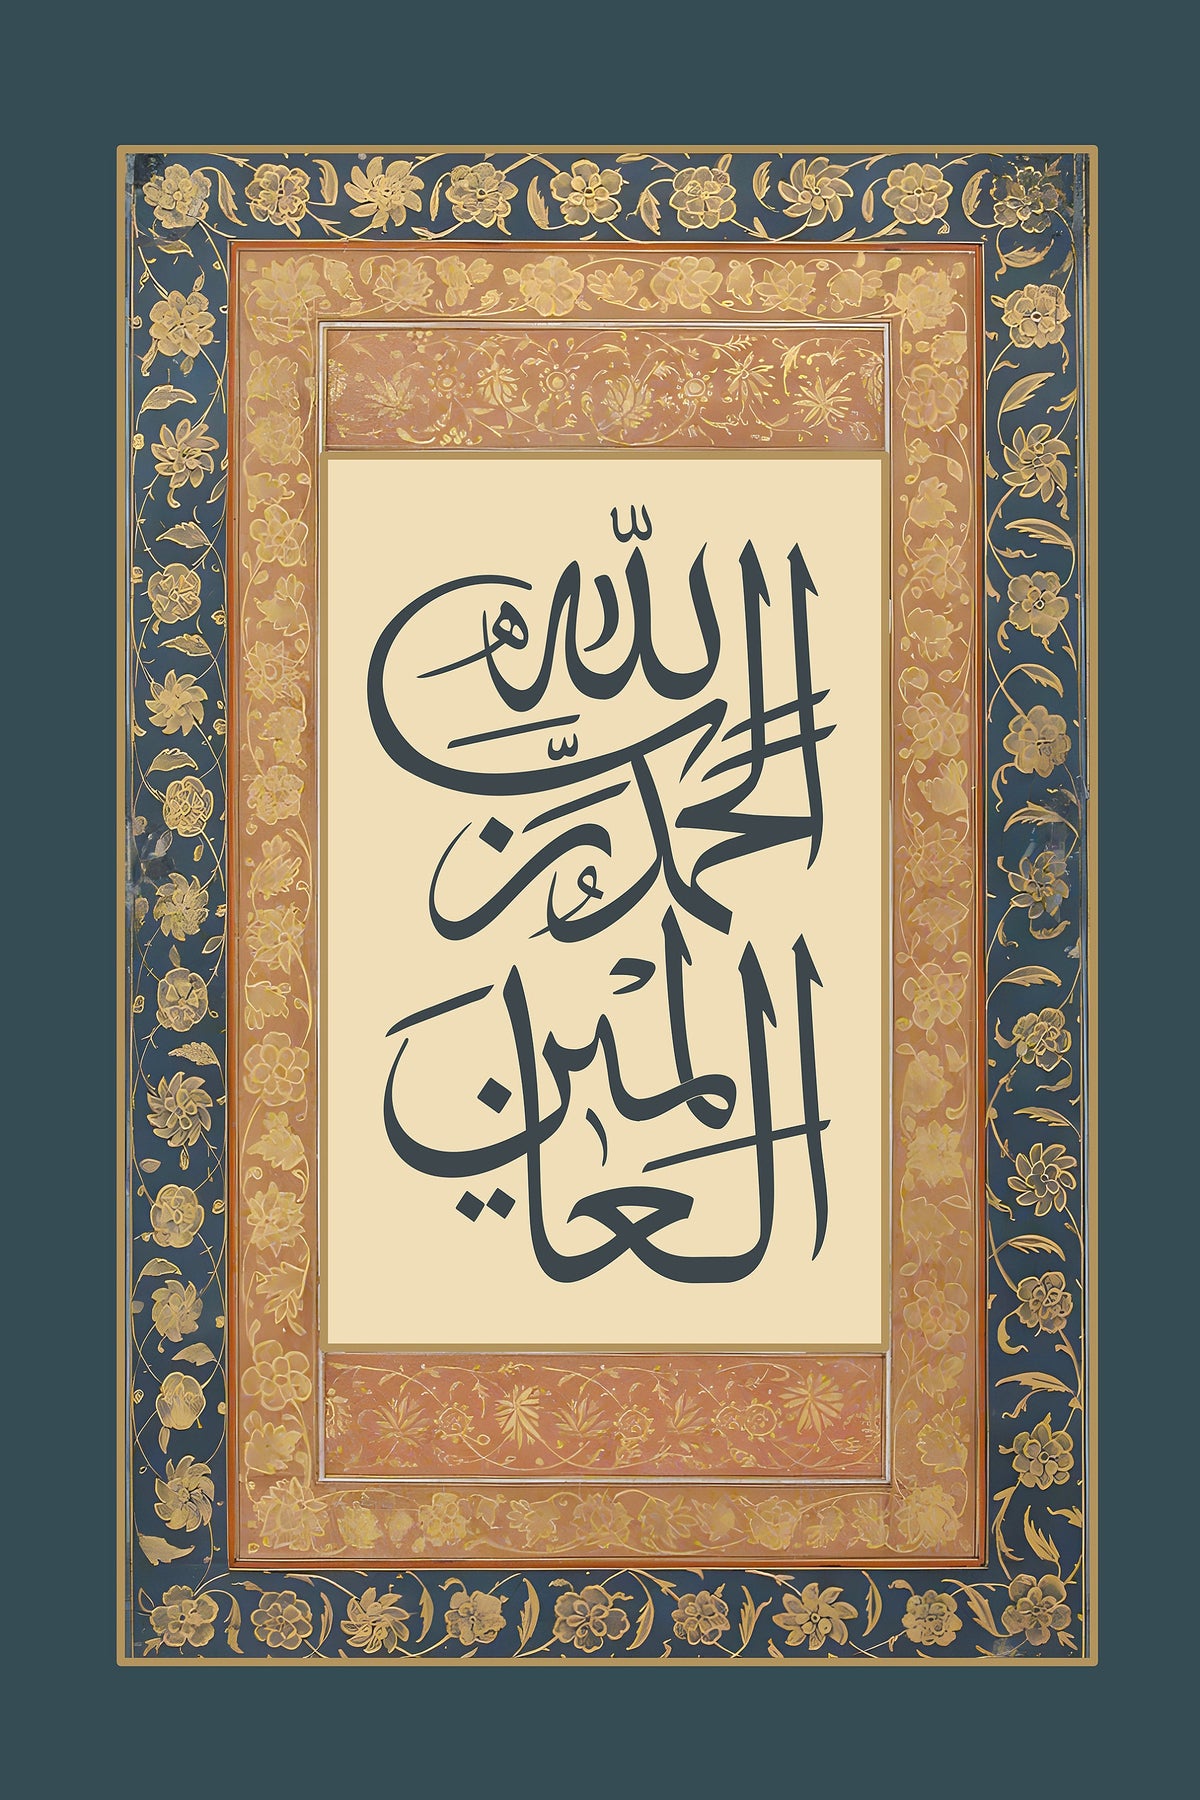 الحمد لله رب
العالمين